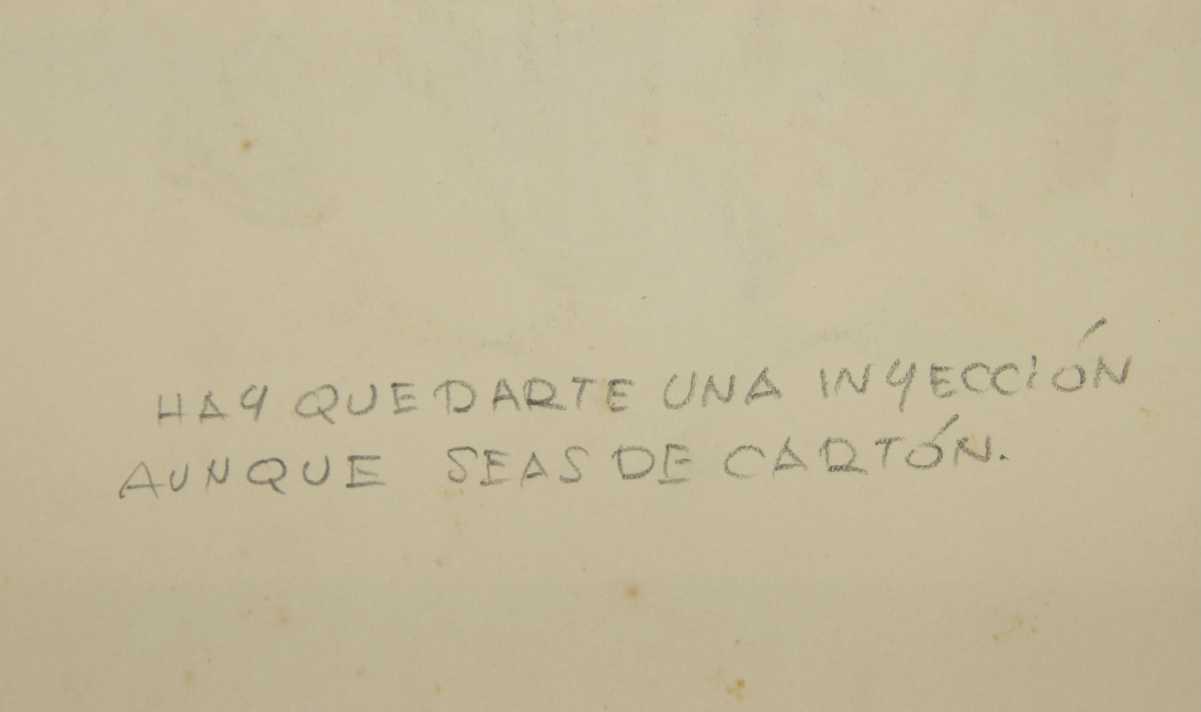 HAY QUE DARTE UNA INYECCIÓN
AUNQUE SEAS DE CARTÓN.